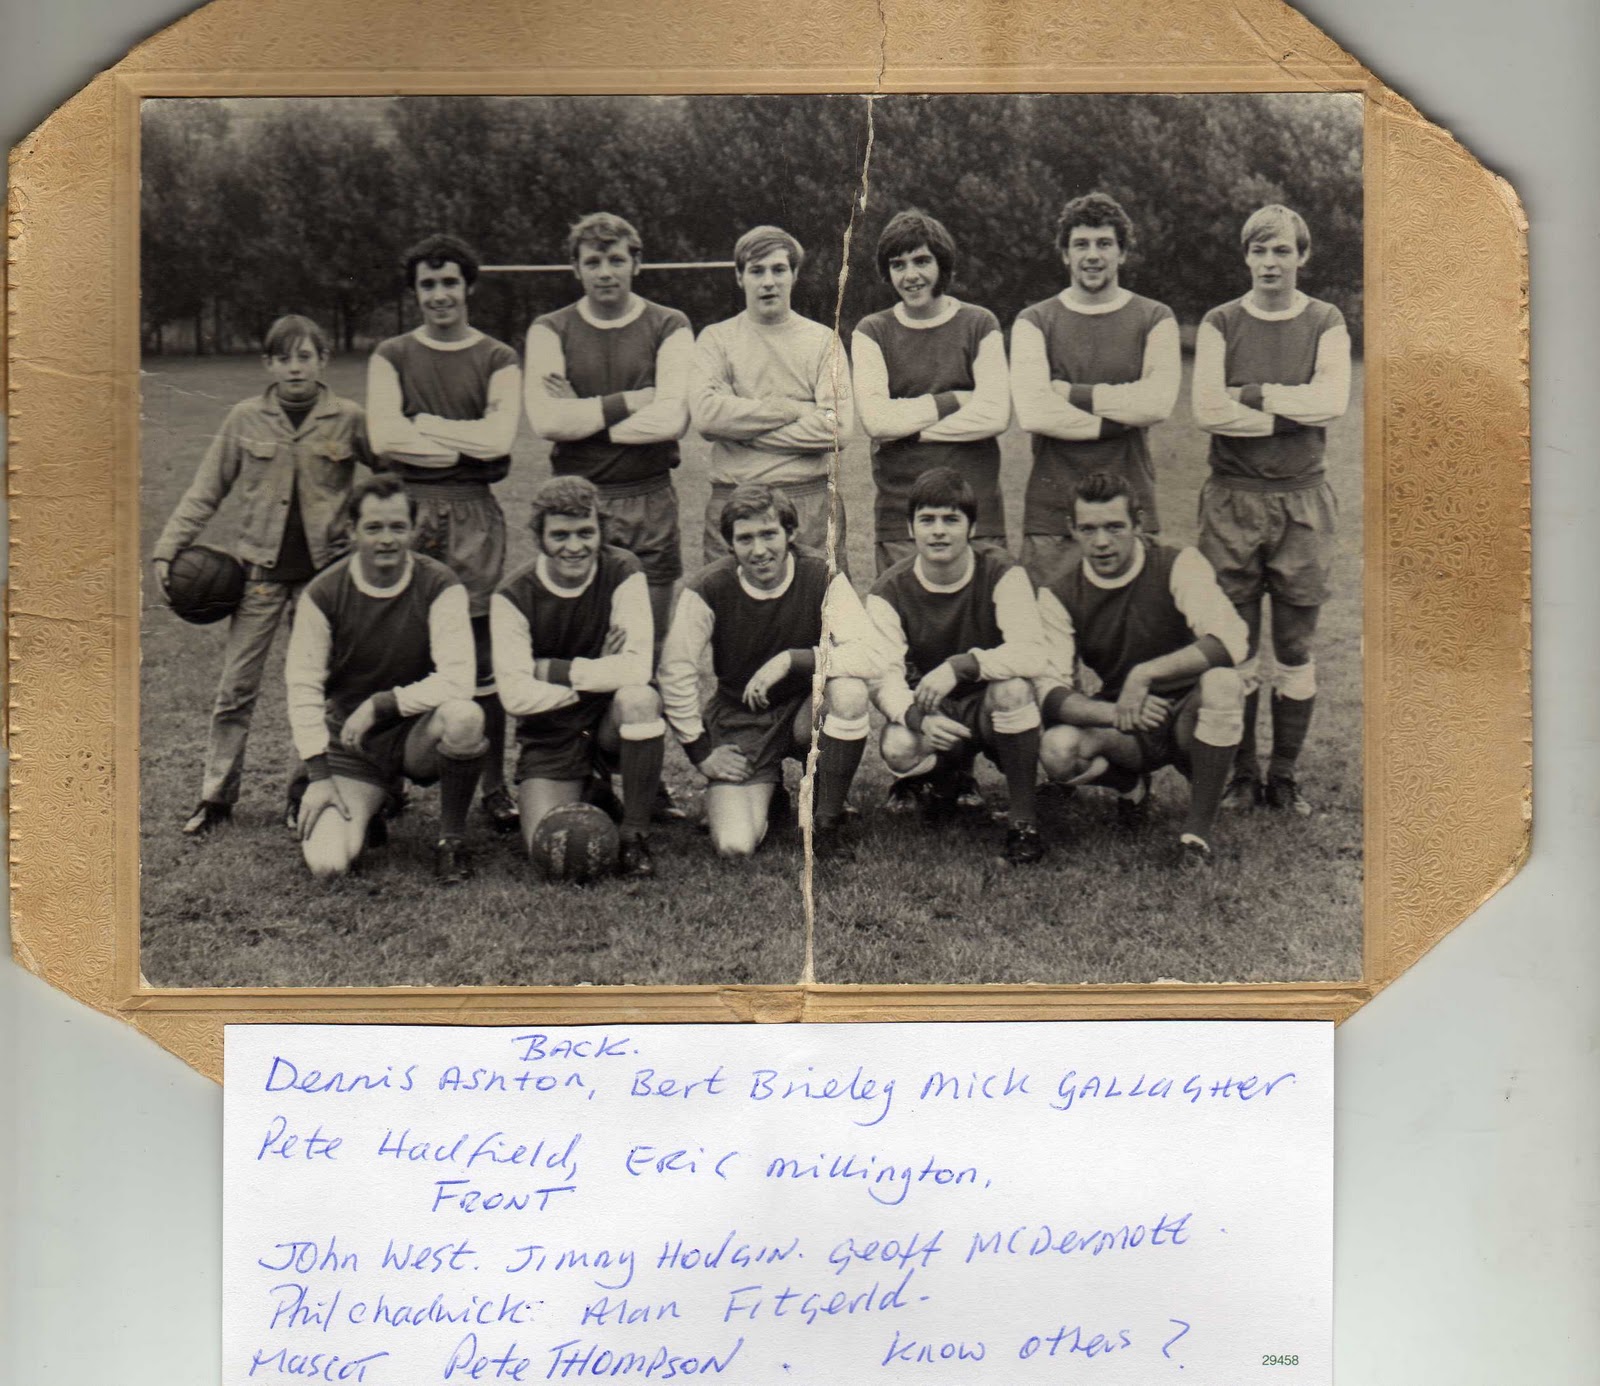 BACK.
Dennis Ashton, Bert Brieley Mick GALLAGHER
Pete Hadfield, ERIC Millington,
FRONT
John West. Jimmy Hodgin. Geoff McDermott.
Phil Chadwick. Alan Fitgerld.
Mascot Pete THOMPSON. Know others?
29458